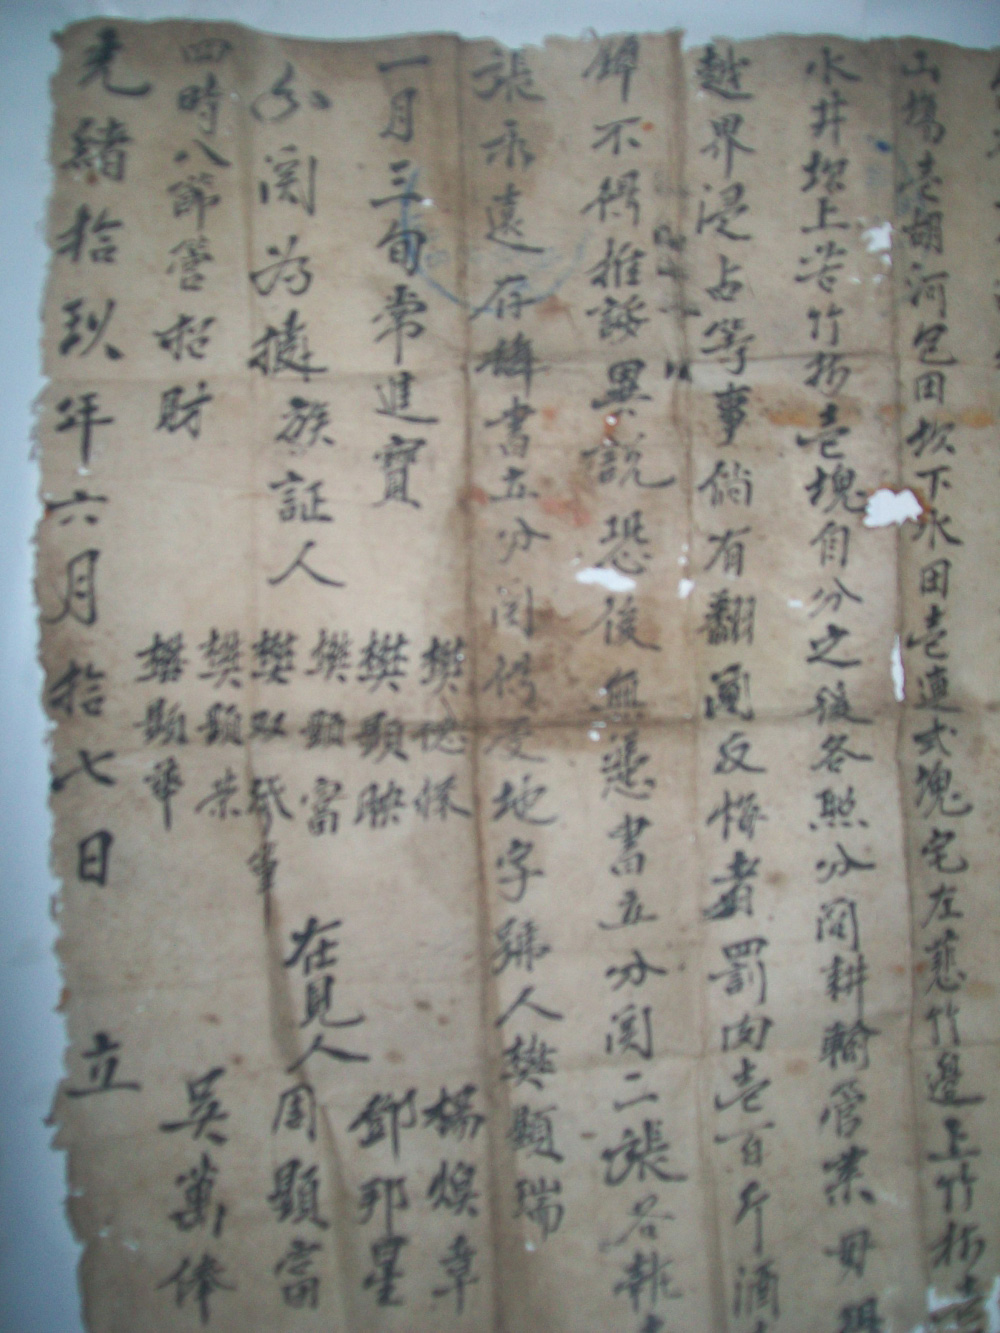 山塲壹胡河包田坎下水田壹連弍塊宅左慈竹邊上竹扸壹
水井坎上苦竹扸壹塊自分之後各照分関耕輸管業毋
越界浸占等事倘有翻圖反悔者罰肉壹百斤酒
鐏不得推諉異説恐後無憑書立分関二張各執
張永遠存據書立分関性受地字號人樊顯瑞
一月三旬常進寳
分関為據族証人
樊德保
樊顯映
樊顯富
樊双
樊顯榮
樊顯華
在見人
楊煥章
鄧邦星
周顯富
吳萬俸
四時八節管招財
光緒拾玖年六月拾七日立